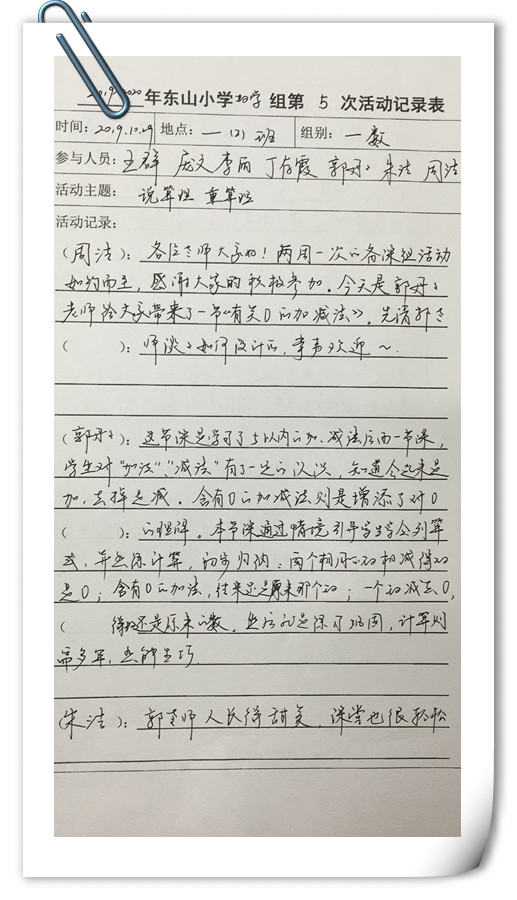 2019-2020年东山小学数学组第 5 次活动记录表
时间：2019.10.29 地点：一(2)班 组别：一数
参与人员：王群 庞文 李丽 丁存霞 郭丹丹 朱洁 周洁
活动主题：说算理 重算理
活动记录：
（周洁）：各位老师大家好！两周一次的备课组活动
如约而至，感谢大家的积极参加。今天是郭丹丹
老师给大家带来了一节《有关0的加减法》。先请郭老
（ ）：师谈谈如何设计的，掌声欢迎～.
（郭丹丹）：这节课是学习了5以内的加、减法后的一节课，
学生对“加法”、“减法”有了一定的认识，知道合起来是
加，去掉是减。含有0的加减法则是增添了对0
（ ）：的理解。本节课通过情境引导学生学会列算
式，并熟练计算，初步归纳：两个相同的数相减得数
是0；含有0的加法，结果还是原来那个数；一个数减去0，
（ 得数还是原来的数。然后就是练习巩固，计算则
需多算，熟能生巧.
（朱洁）：郭老师人长得甜美，课堂也很轻松